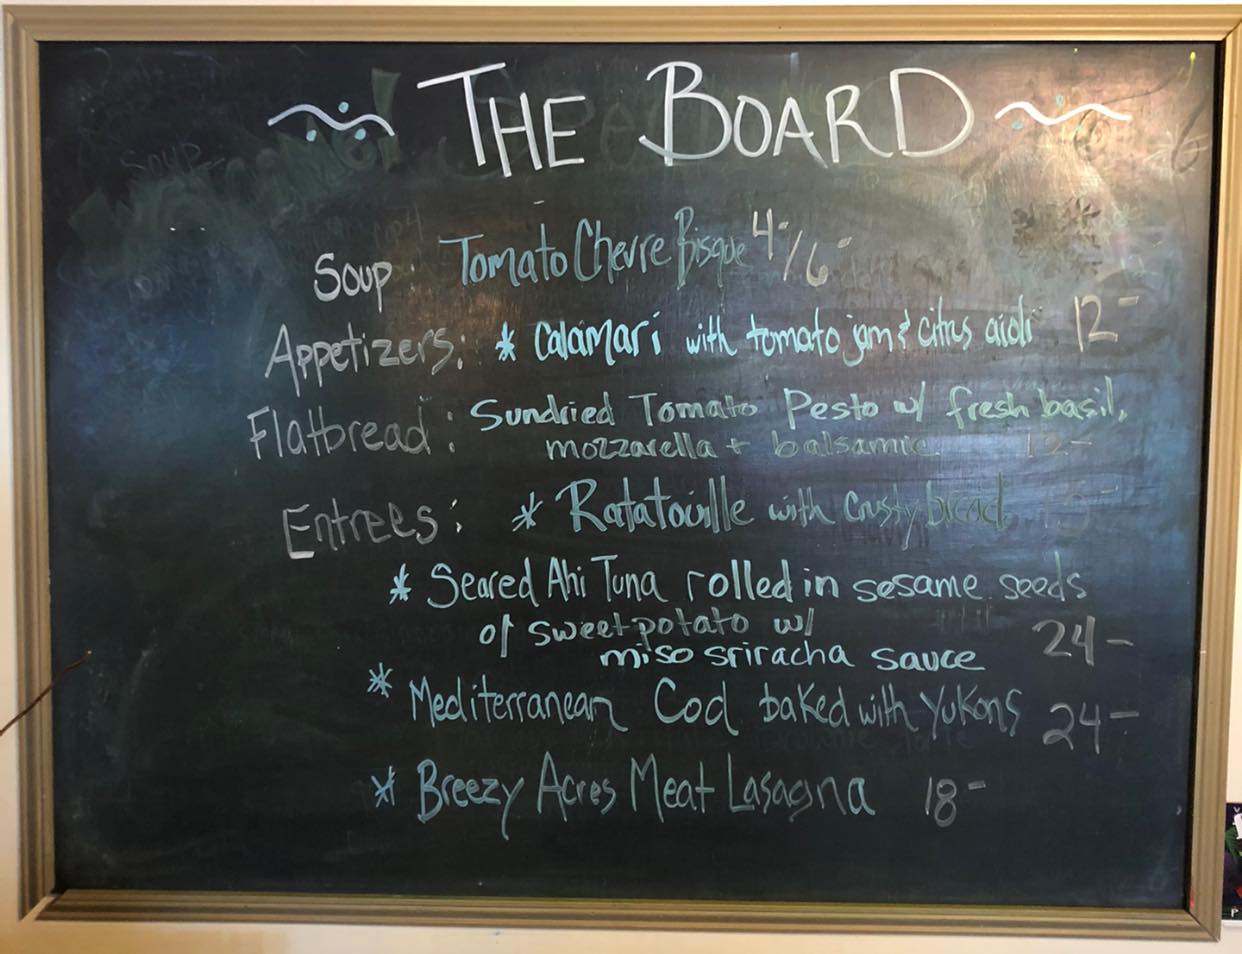 THE BOARD
Soup Tomato Chevre Bisque 4-/6-
Appetizers: * Calamari with tomato jam & citrus aioli 12-
Flatbread: Sundried Tomato Pesto w/ fresh basil,
mozzarella + balsamic 12-
Entrees: * Ratatouille with Crusty bread
* Seared Ahi Tuna rolled in sesame seeds
of sweet potato w/ 24-
miso sriracha sauce
* Mediterranean Cod baked with Yukons 24-
* Breezy Acres Meat Lasagna 18-